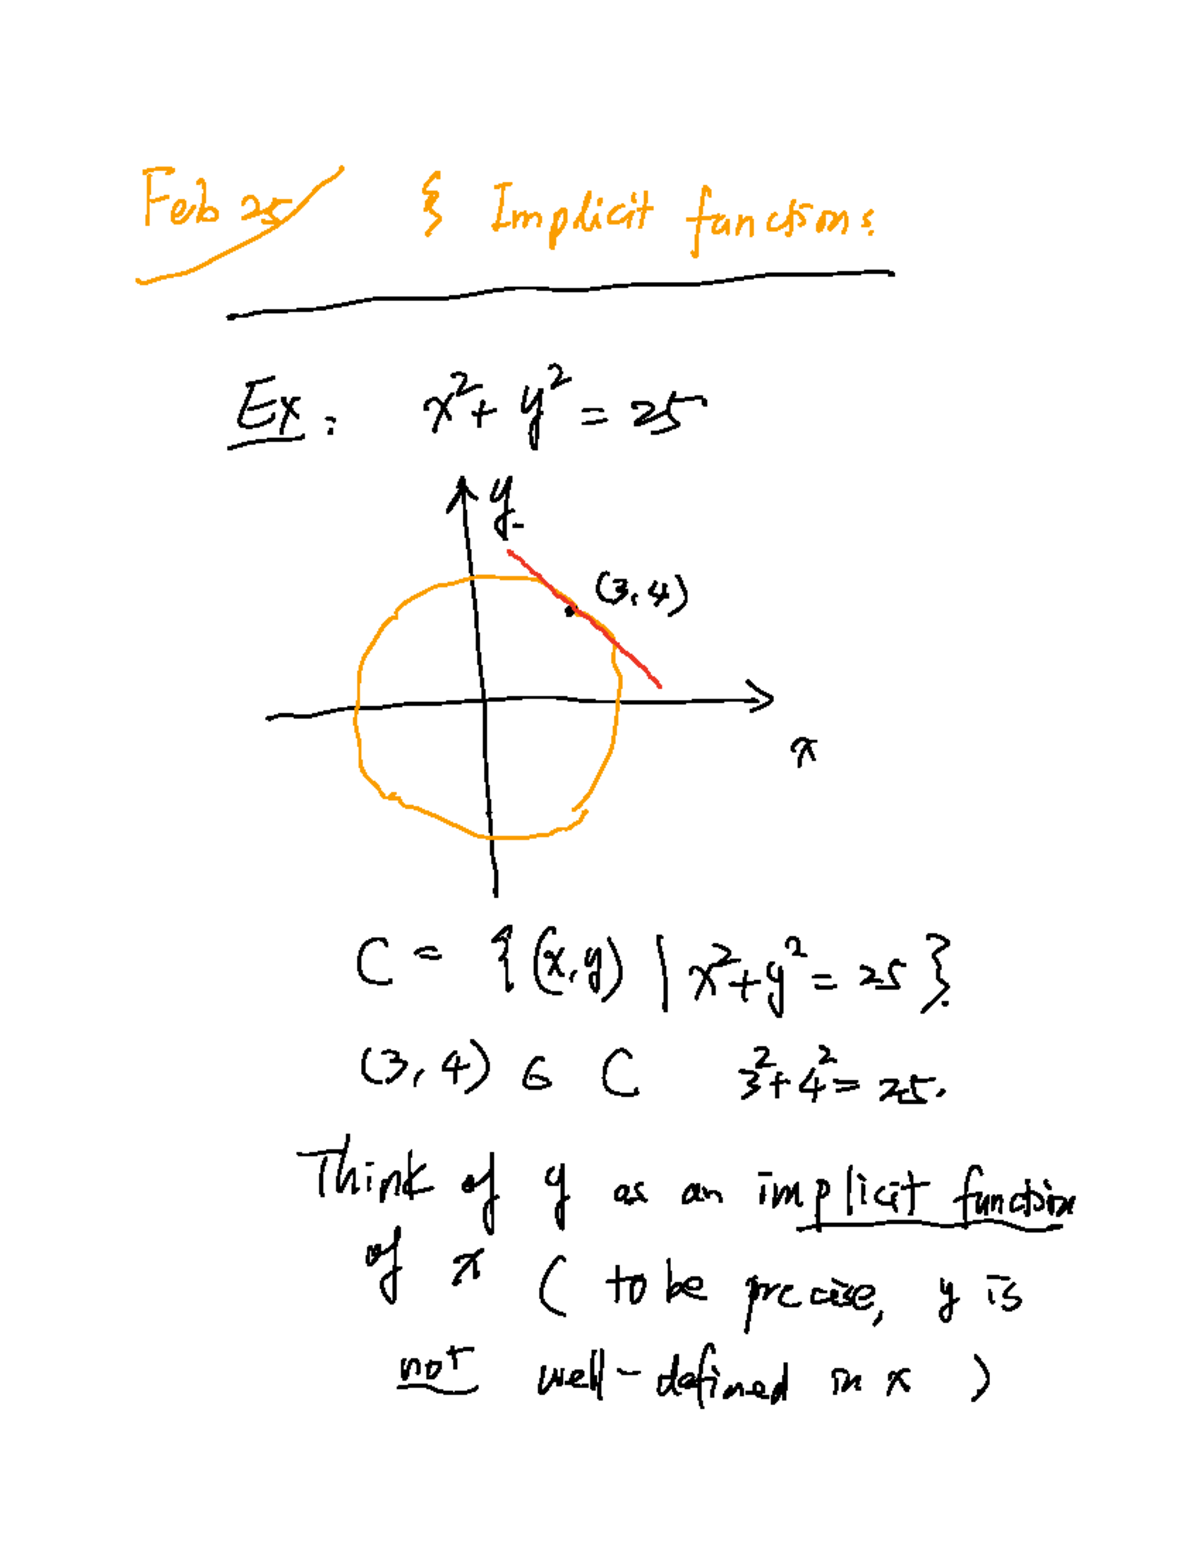 Feb 25 § Implicit functions.
Ex: x²+ y² = 25
y
(3,4)
x
C = {(x,y) | x²+y² = 25}.
(3,4) ∈ C 3²+4² = 25.
Think of y as an implicit function
of x ( to be precise, y is
not well-defined in x )